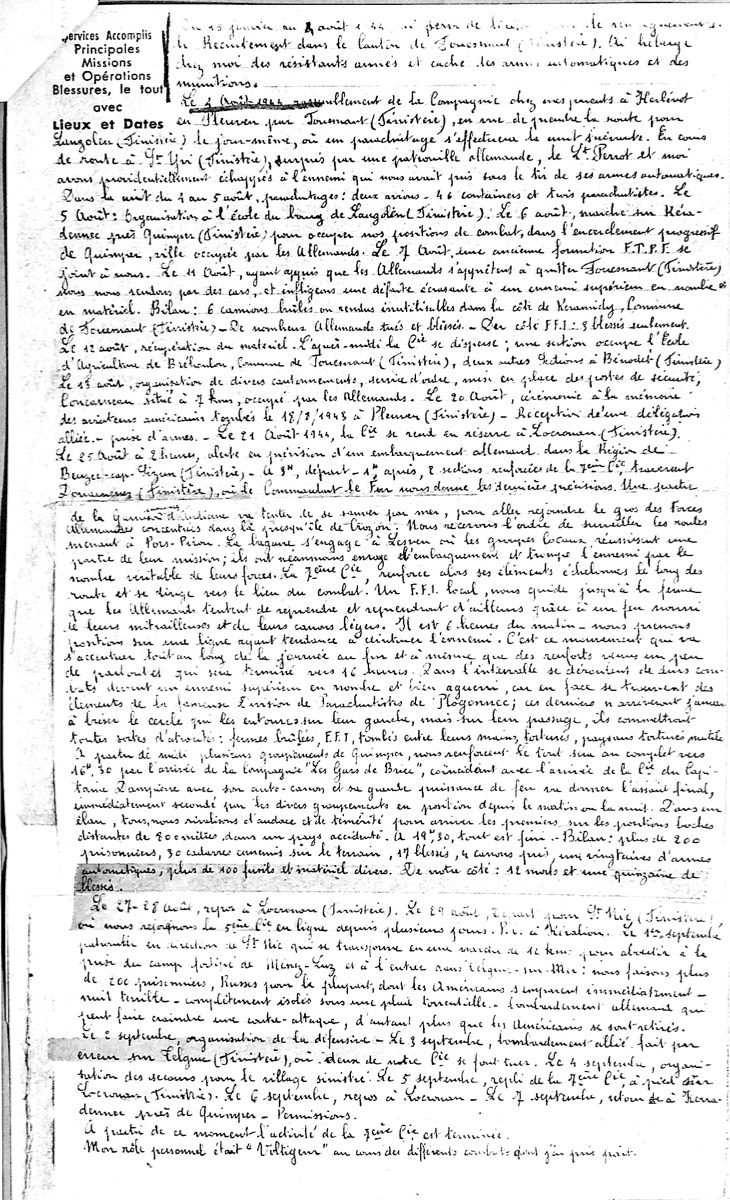 Services Accomplis
Principales
Missions
et Opérations
Blessures, le tout
avec
Lieux et Dates
Du 15 janvier au août
le Recrutement dans le Canton de Fouesnant (Finistère). Ai hébergé
chez moi des résistants armés et caché des armes automatiques et des
munitions.
Le 4 Août 1944 rassemblement de la Compagnie chez mes parents à
en Pleuven par Fouesnant (Finistère), en vue de prendre la route pour
Langolen (Finistère) le jour-même, où un parachutage s'effectuera la nuit suivante. En cours
de route à St Yvi (Finistère), surpris par une patrouille allemande, le Lt Perrot et moi
avons providentiellement échappés à l'ennemi qui nous avait pris sous le tir de ses armes automatiques.
Dans la nuit du 4 au 5 août, parachutages : deux avions - 46 containers et trois parachutistes. Le
5 Août : Organisation à l'école du bourg de Langolen (Finistère). Le 6 août, marche sur Kéra-
dennec près Quimper (Finistère) pour occuper nos positions de combat, dans l'encerclement progressif
de Quimper, ville occupée par les Allemands. Le 7 Août, une ancienne formation F.T.P.F. se
joint à nous. Le 11 Août, ayant appris que les Allemands s'apprêtent à quitter Fouesnant (Finistère)
nous nous rendons par des cars, et infligeons une défaite écrasante à un ennemi supérieur en nombre et
en matériel. Bilan : 6 camions brûlés ou rendus inutilisables dans la côte de Commune
de Fouesnant (Finistère) - De nombreux Allemands tués et blessés. - Du côté F.F.I : 3 blessés seulement.
Le 12 août, récupération du matériel. L'après-midi la Cie se disperse ; une section occupe l'Ecole
d'Agriculture de Bréhoulou, Commune de Fouesnant (Finistère), deux autres Sections à Bénodet (Finistère)
Le 13 août, organisation de divers cantonnements, service d'ordre, mise en place des postes de sécurité,
Concarneau situé à 7 kms, occupé par les Allemands. Le 20 Août, cérémonie à la mémoire
des aviateurs américains tombés le 1943 à Pleuven (Finistère) - Réception d'une délégation
alliée - prise d'armes. - Le 21 Août 1944, la Cie se rend en réserve à Locronan (Finistère).
Le 25 Août à 2 heures, alerte en prévision d'un embarquement allemand dans la Région de
Beuzec-cap-Sizun (Finistère) - A 3H, départ - 1H après, 2 sections renforcées de la 7ème Cie traversent
Douarnenez (Finistère), où le Commandant Le Fur nous donne les dernières précisions. Une partie
de la Garnison d'Audierne va tenter de se sauver par mer, pour aller rejoindre le gros des Forces
Allemandes concentrées dans la presqu'île de Crozon. Nous recevons l'ordre de surveiller les routes
menant à Pors-Piron. La bagarre s'engage à Lesven où les groupes locaux, réussissent une
partie de leur mission ; ils ont néanmoins enrayé l'embarquement et trompé l'ennemi par le
nombre véritable de leurs forces. La 7ème Cie, renforce alors ses éléments échelonnés le long des
route et se dirige vers le lieu du combat. Un F.F.I. local, nous guide jusqu'à la ferme
que les Allemands tentent de reprendre et reprendront d'ailleurs grâce à un feu nourri
de leurs mitrailleuses et de leurs canons légers. Il est 6 heures du matin - nous prenons
positions sur une ligne ayant tendance à ceinturer l'ennemi. C'est ce mouvement qui va
s'accentuer tout au long de la journée au fur et à mesure que des renforts venus un peu
de partout et qui sera terminé vers 16 heures. Dans l'intervalle se déroulent de durs com-
bats devant un ennemi supérieur en nombre et bien aguerri, car en face se trouvent des
éléments de la fameuse Division de Parachutistes de Plogonnec ; ces derniers n'arriveront jamais
à briser le cercle qui les entoure sur leur gauche, mais sur leur passage, ils commettront
toutes sortes d'atrocités : fermes brûlées, F.F.I. tombés entre leurs mains, torturés, paysans torturés mutilés
A partir de midi plusieurs groupements de Quimper, nous renforcent. Le tout sera au complet vers
16H,30 par l'arrivée de la Compagnie "Les Gars de Briec", coïncidant avec l'arrivée de la Cie du Capi-
taine avec son auto-canon et sa grande puissance de feu va donner l'assaut final,
immédiatement secondé par les divers groupements en position depuis le matin ou la nuit. Dans un
élan, tous, nous rivalisons d'audace et de témérité pour arriver les premiers sur les positions boches
distantes de 800 mètres dans un pays accidenté. A 19H30, tout est fini - Bilan : plus de 200
prisonniers, 30 cadavres ennemis sur le terrain, 17 blessés, 4 canons pris, une vingtaine d'armes
automatiques, plus de 100 fusils et matériel divers. De notre côté : 12 morts et une quinzaine de
blessés.
Le 27-28 août, repos à Locronan (Finistère). Le 29 août, départ pour St Nic (Finistère)
où nous rejoignons la 5ème Cie en ligne depuis plusieurs jours. P.C. à Kervalion. Le 1er septembre
patrouille en direction de St Nic qui se transforme en une marche de 12 kms pour aboutir à la
prise du camp fortifié de Ménez-Luz et à l'entrée dans Telgruc-sur-Mer : nous faisons plus
de 200 prisonniers, Russes pour la plupart, dont les Américains s'emparent immédiatement -
nuit terrible - complètement isolés sous une pluie torrentielle - bombardement allemand qui
peut faire craindre une contre-attaque, d'autant plus que les Américains se sont retirés.
Le 2 septembre, organisation de la défensive - Le 3 septembre, bombardement allié fait par
erreur sur Telgruc (Finistère), où deux de notre Cie se font tuer. Le 4 septembre, organi-
sation des secours pour le village sinistré. Le 5 septembre, repli de la 7ème Cie à pied sur
Locronan (Finistère). Le 6 septembre, repos à Locronan - Le 7 septembre, retour à Kera-
dennec près de Quimper - Permissions.
A partir de ce moment l'activité de la 7ème Cie est terminée.
Mon rôle personnel était "Voltigeur" au cours des différents combats dont j'ai pris part.